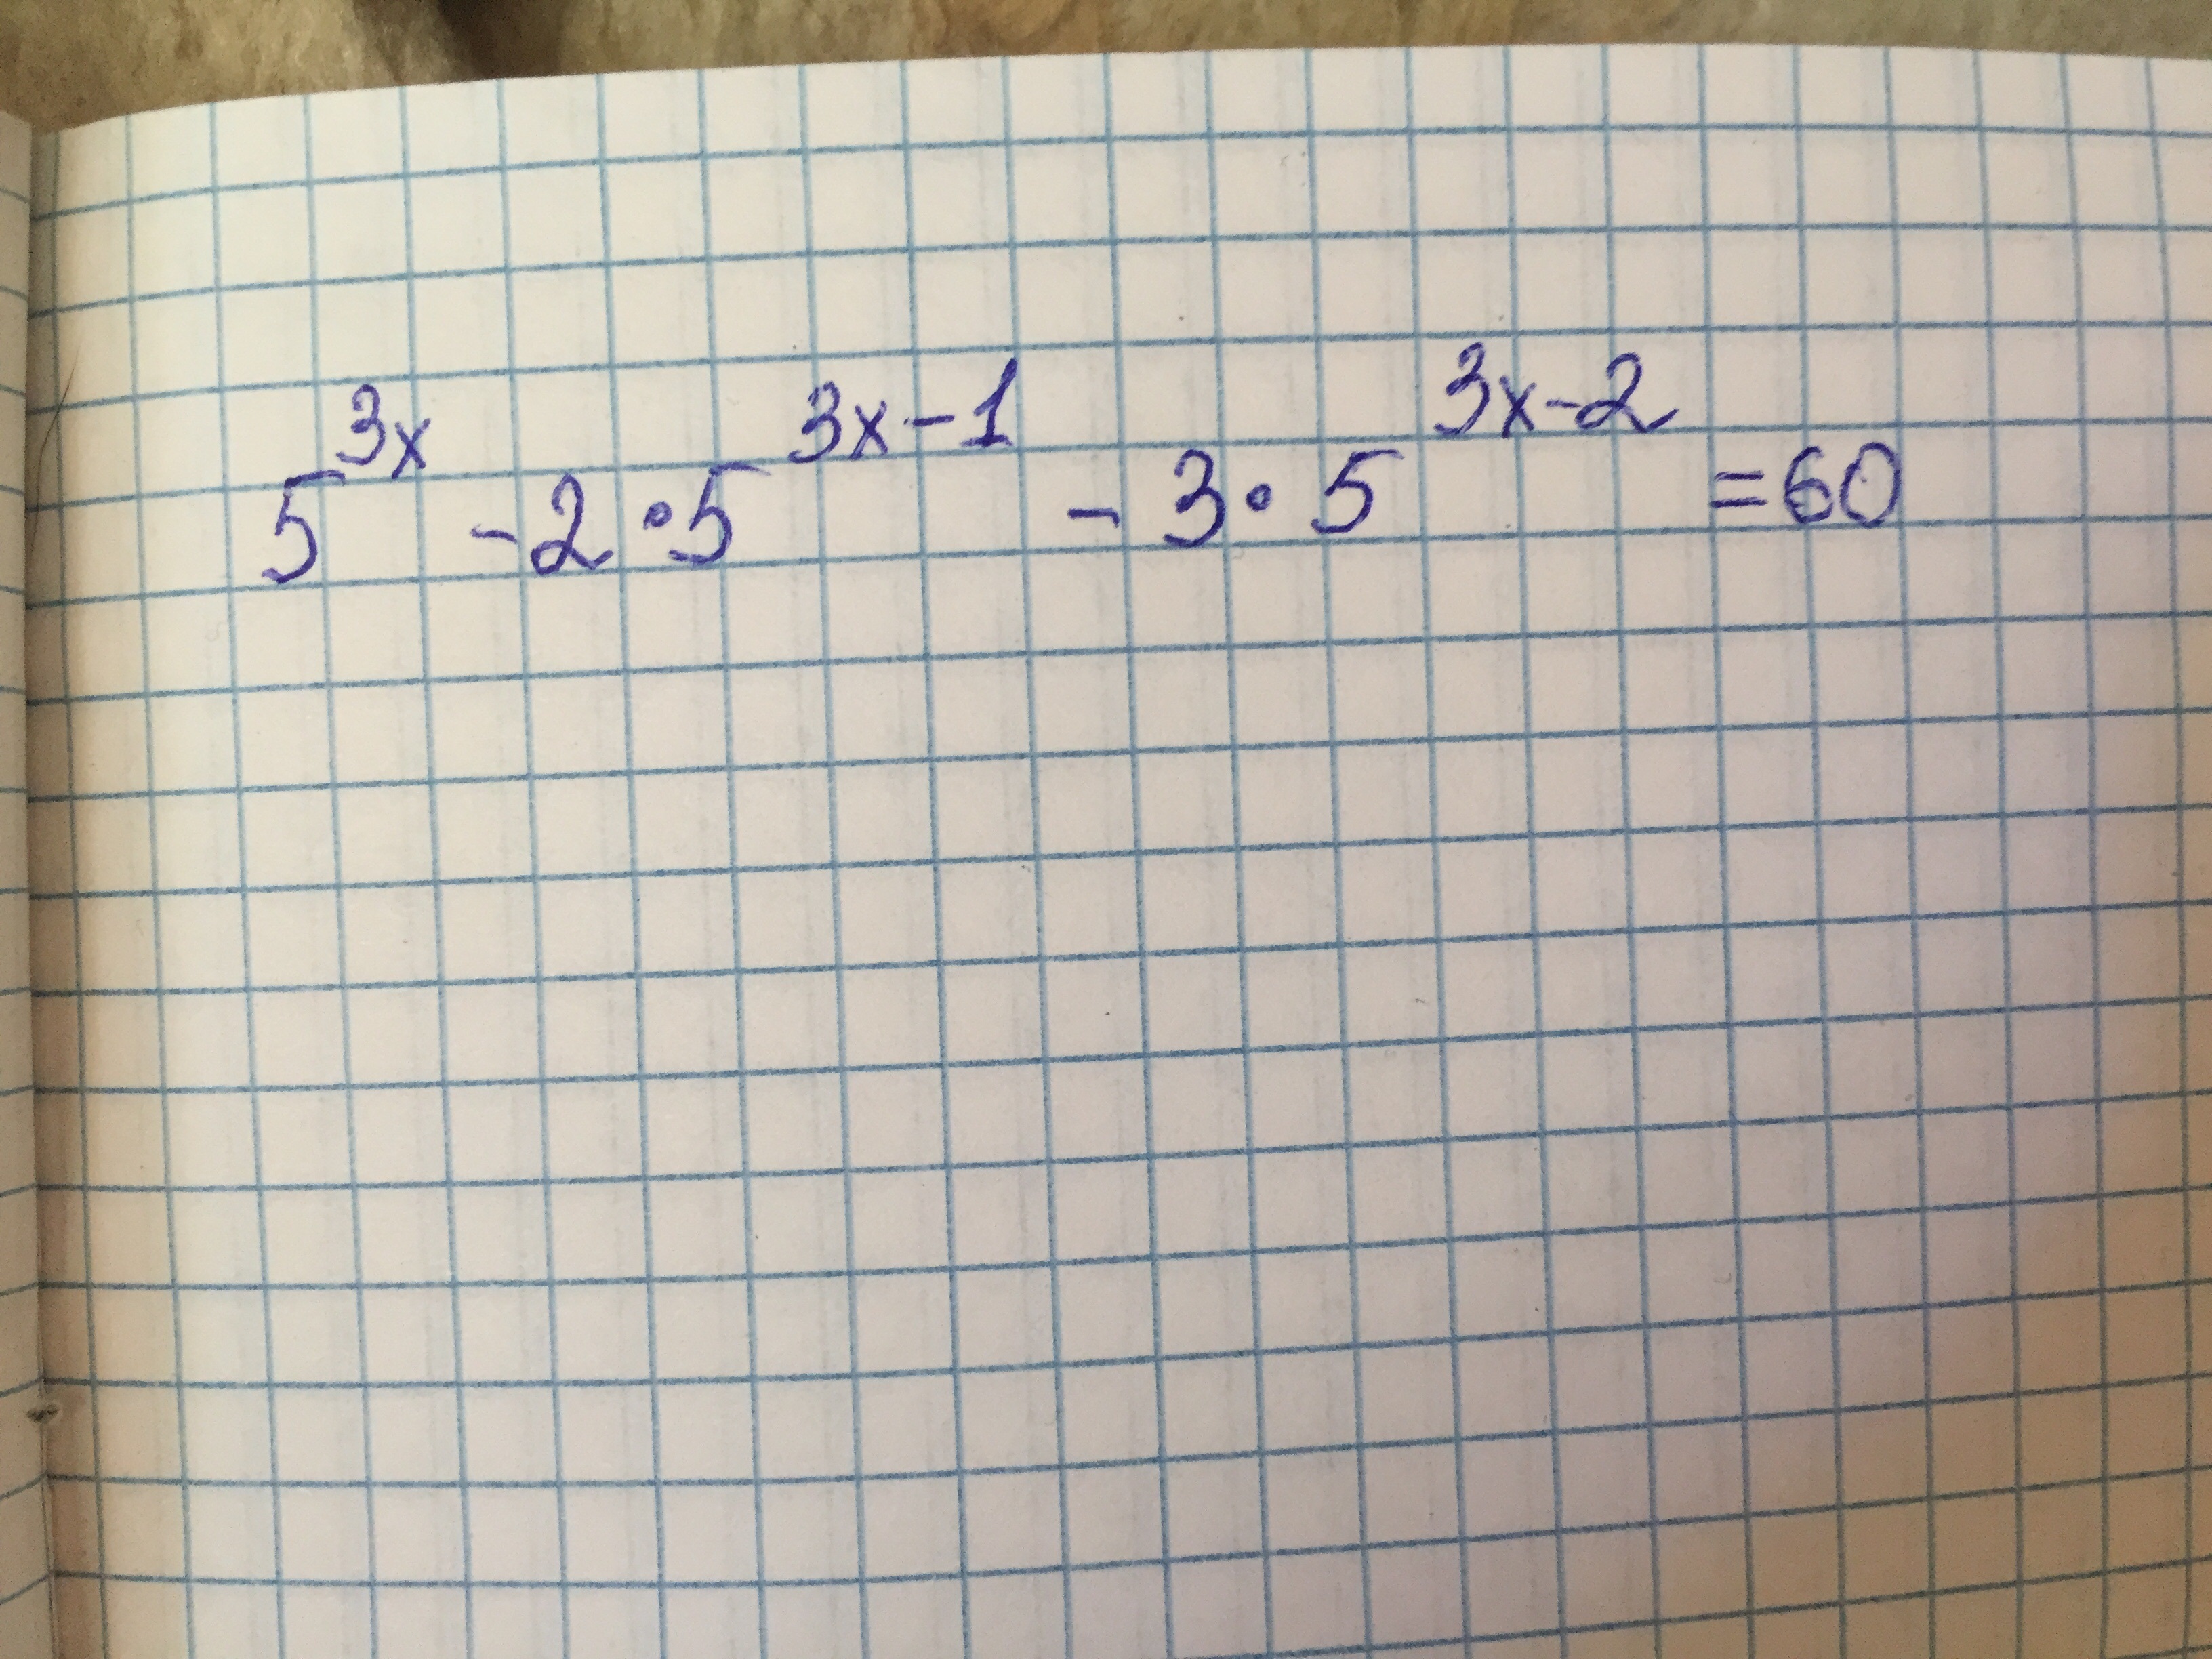 5^{3x} - 2 · 5^{3x-1} - 3 · 5^{3x-2} = 60